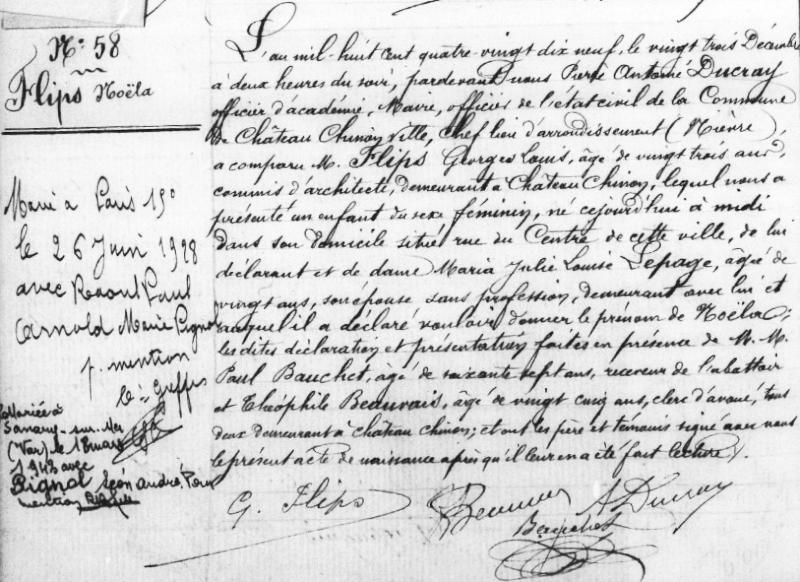 N° 58
Flips Noëla
Marié à Paris 19e
le 26 Juin 1928
avec Raoul Paul
Arnold Marie
p. mention
le Greffier
Mariée à
Sanary-sur-Mer
(Var) le 18 mars
1943 avec
Pignol Léon André,
mention
L'an mil-huit cent quatre-vingt dix neuf, le vingt trois Décembre
à deux heures du soir, pardevant nous Pierre Antoine Ducray
officier d'académie, Maire, officier de l'état civil de la Commune
de Château Chinon ville, chef lieu d'arrondissement (Nièvre
a comparu M. Flips Georges Louis, âgé de vingt trois ans,
commis d'architecte, demeurant à Château Chinon, lequel nous a
présenté un enfant du sexe féminin, né cejourd'hui à midi
dans son domicile situé rue du Centre de cette ville, de lui
déclarant et de dame Maria Julie Louise Lepage, âgée de
vingt ans, son épouse sans profession, demeurant avec lui et
auquel il a déclaré vouloir donner le prénom de Noëla;
les dites déclaration et présentation faites en présence de M.M.
Paul Bauchet, âgé de soixante sept ans, receveur de l'abattoir
et Théophile Beauvais, âgé de vingt cinq ans, clerc d'avoué, tous
deux demeurant à château chinon; et ont les père et témoins signé avec nous
le présent acte de naissance après qu'il leur en a été fait lecture.
G. Flips Beauvais A Ducray
Bauchet